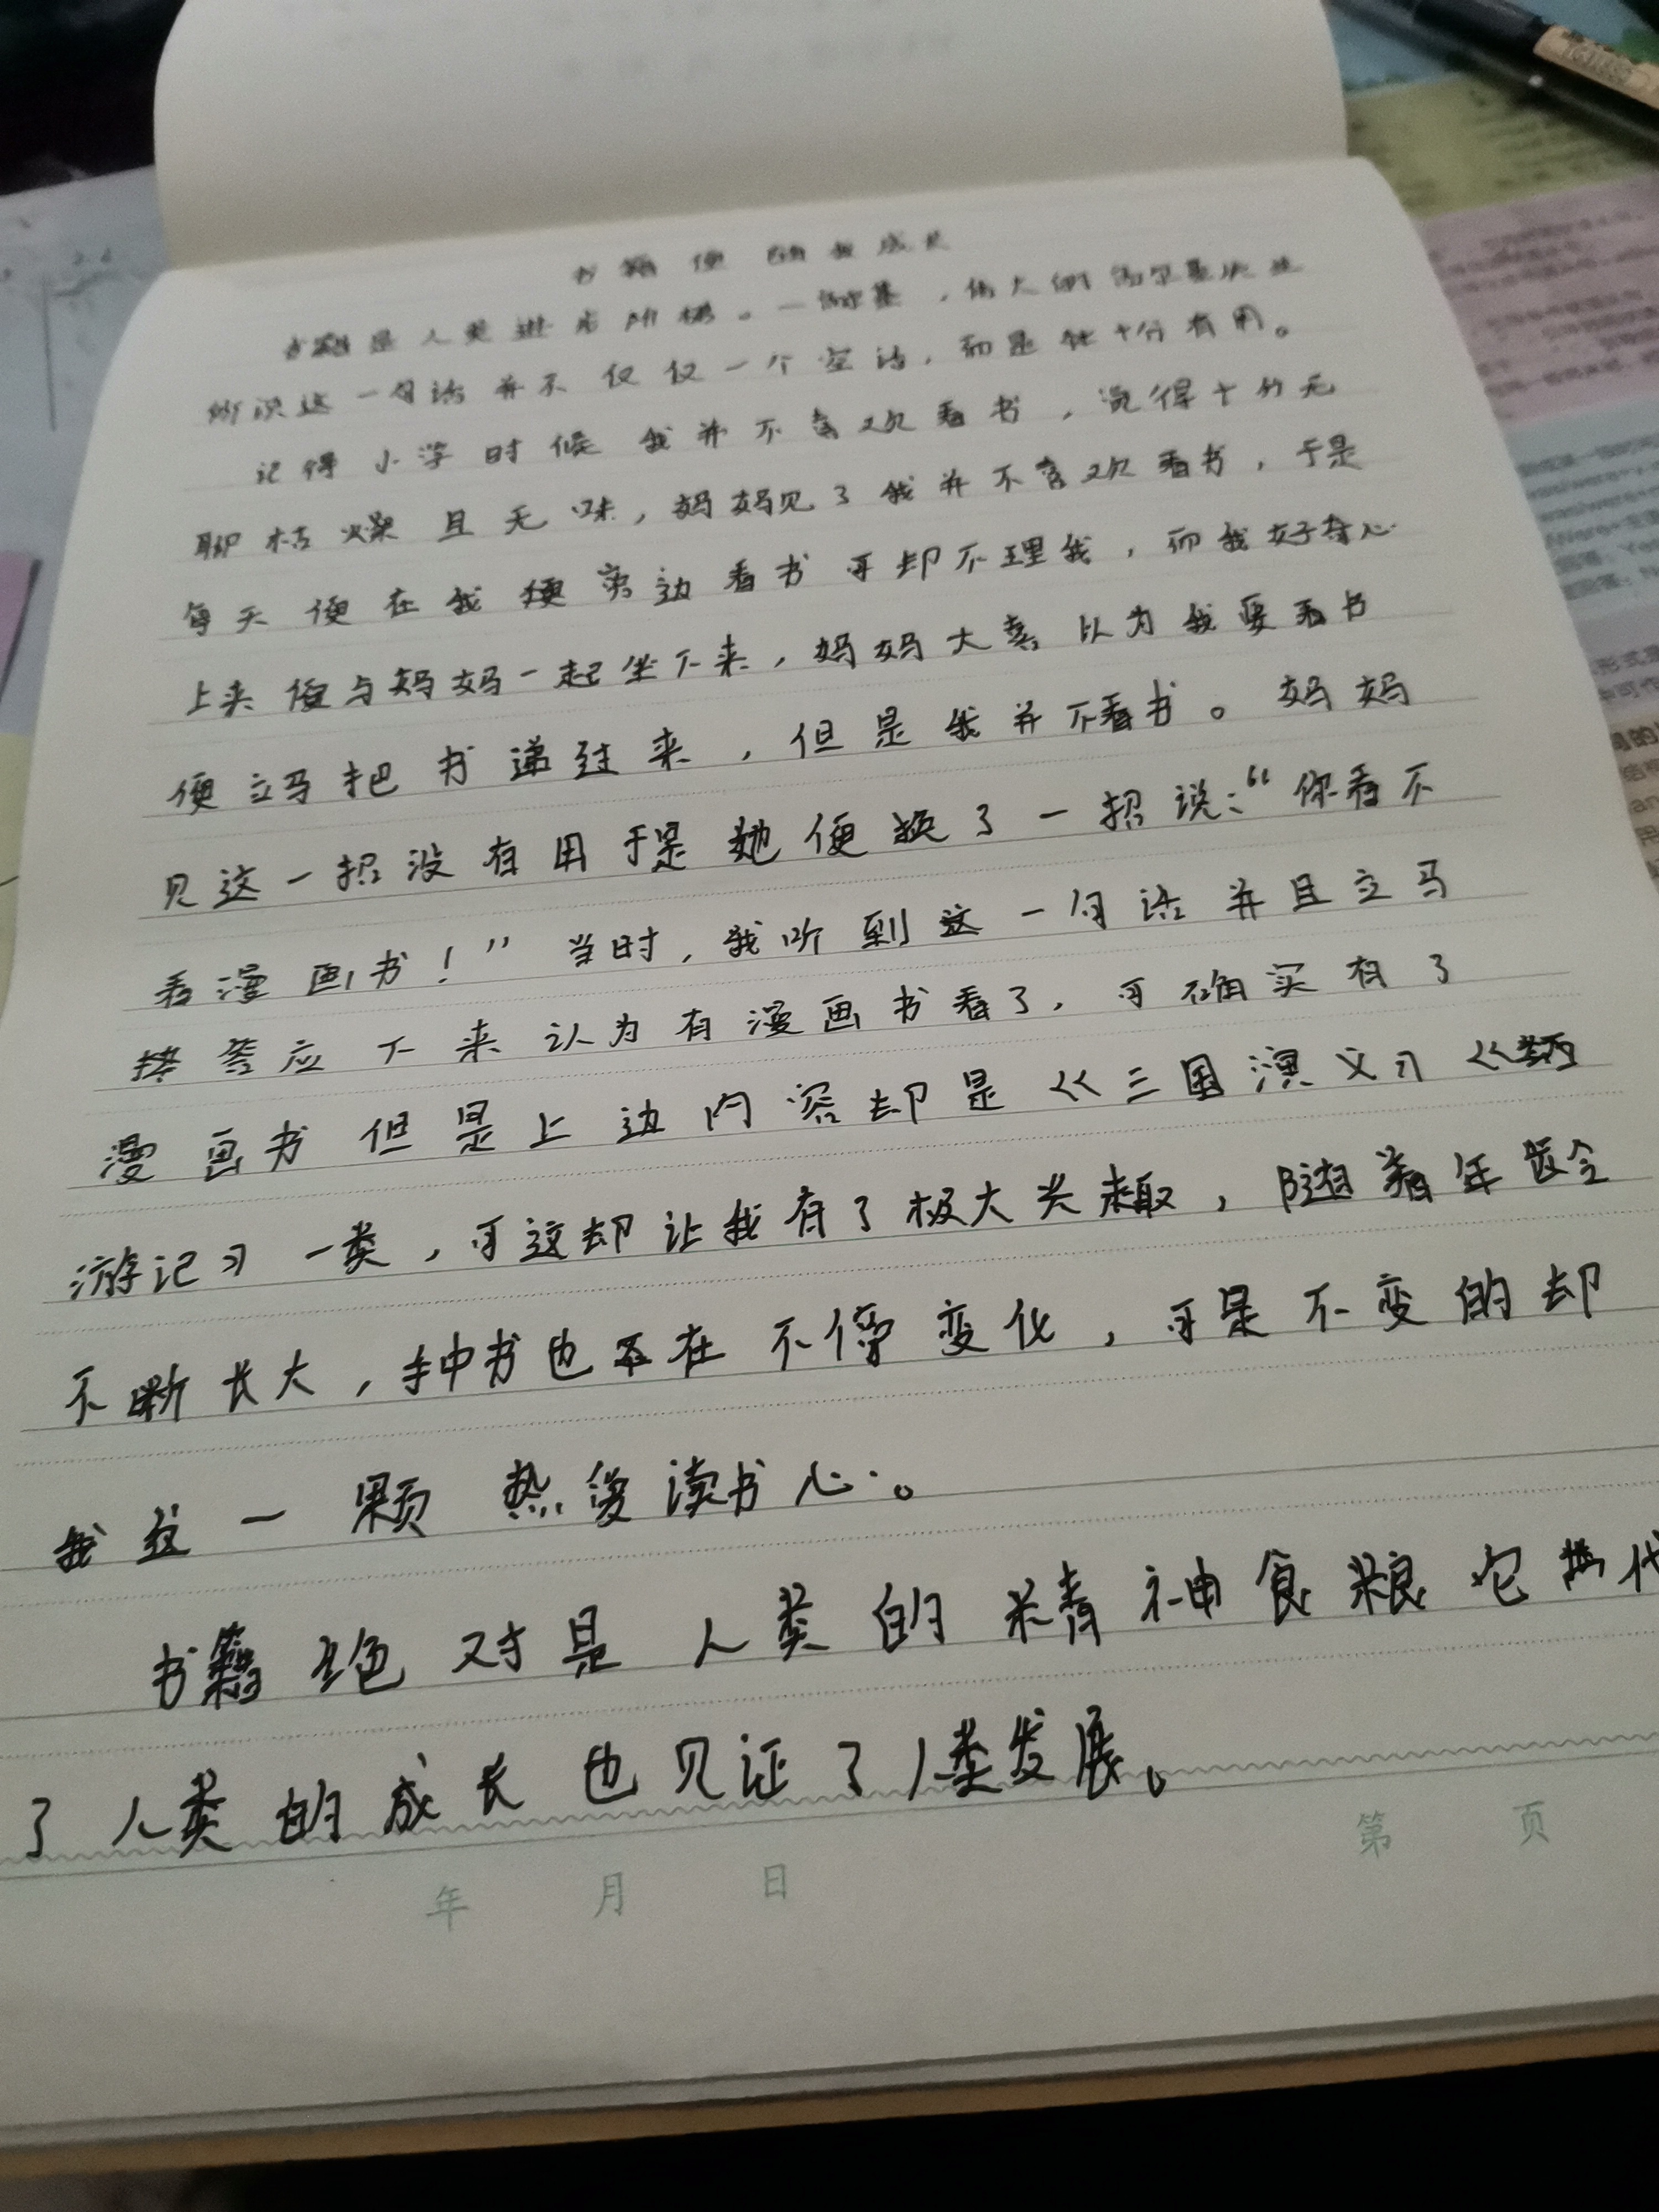 书籍便 随我成长
书籍是人类进步阶梯。一 ，伟大的高尔基
所说这一句话并不仅仅一个空话，而是 十分有用。
记得小学时候我并不喜欢看书，觉得十分无
聊枯燥且无味，妈妈见了我并不喜欢看书，于是
每天便在我 旁边看书可却不理我，而我好奇心
上来便与妈妈一起坐下来，妈妈大喜以为我要看书
便立马把书递过来，但是我并不看书。妈妈
见这一招没有用于是她便换了一招说：“你看不
看漫画书！”当时，我听到这一句话并且立马
答应下来认为有漫画书看了，可确实有了
漫画书但是上边内容却是《三国演义》《西
游记》一类，可这却让我有了极大兴趣，随着年龄
不断长大，种书也 在不停变化，可是不变的却
我这一颗热爱读书心。
书籍绝对是人类的精神食粮它 代
了人类的成长也见证了人类发展。
年 月 日
第 页